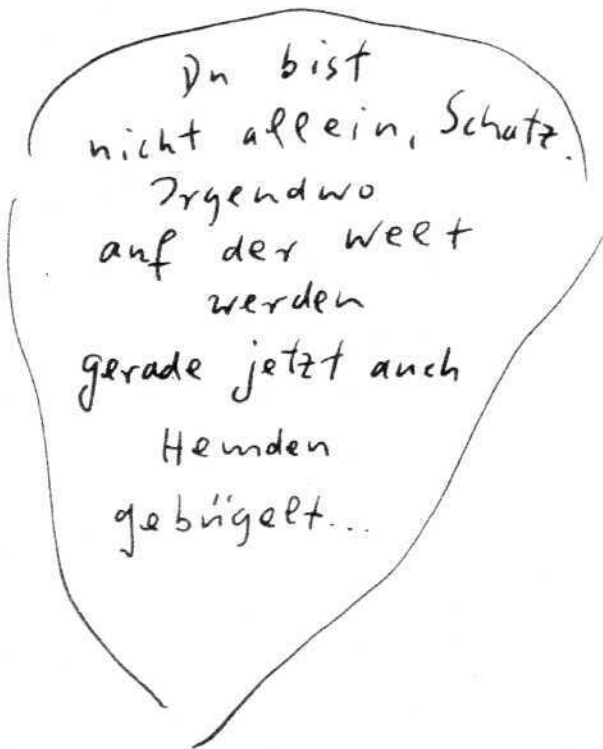 Du bist
nicht allein, Schatz.
Irgendwo
auf der Welt
werden
gerade jetzt auch
Hemden
gebügelt...